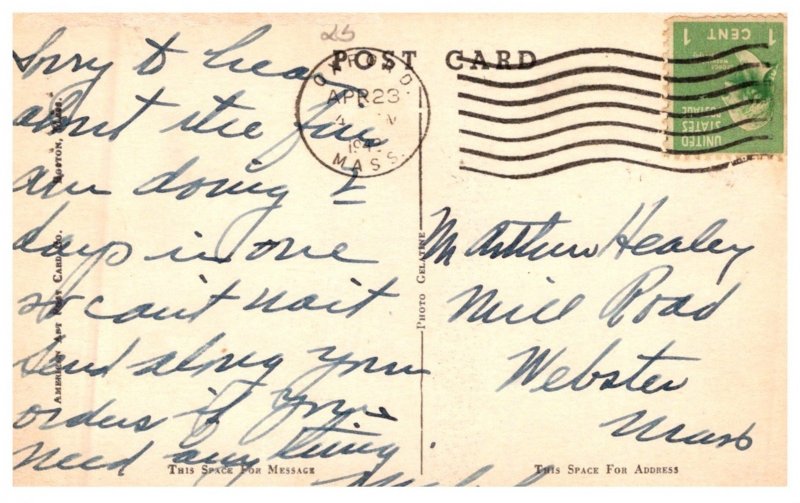 25
POST CARD
OXFORD
APR 23
MASS.
1 CENT 1
UNITED
STATES
POSTAGE
Sorry to hear
about the fire
am doing 2
days in one
so can't wait
send along your
orders if you
need anything.
M Arthur Healey
Mill Road
Webster
Mass
AMERICAN ART POST CARD CO. BOSTON, MASS.
PHOTO GELATINE
THIS SPACE FOR MESSAGE
THIS SPACE FOR ADDRESS